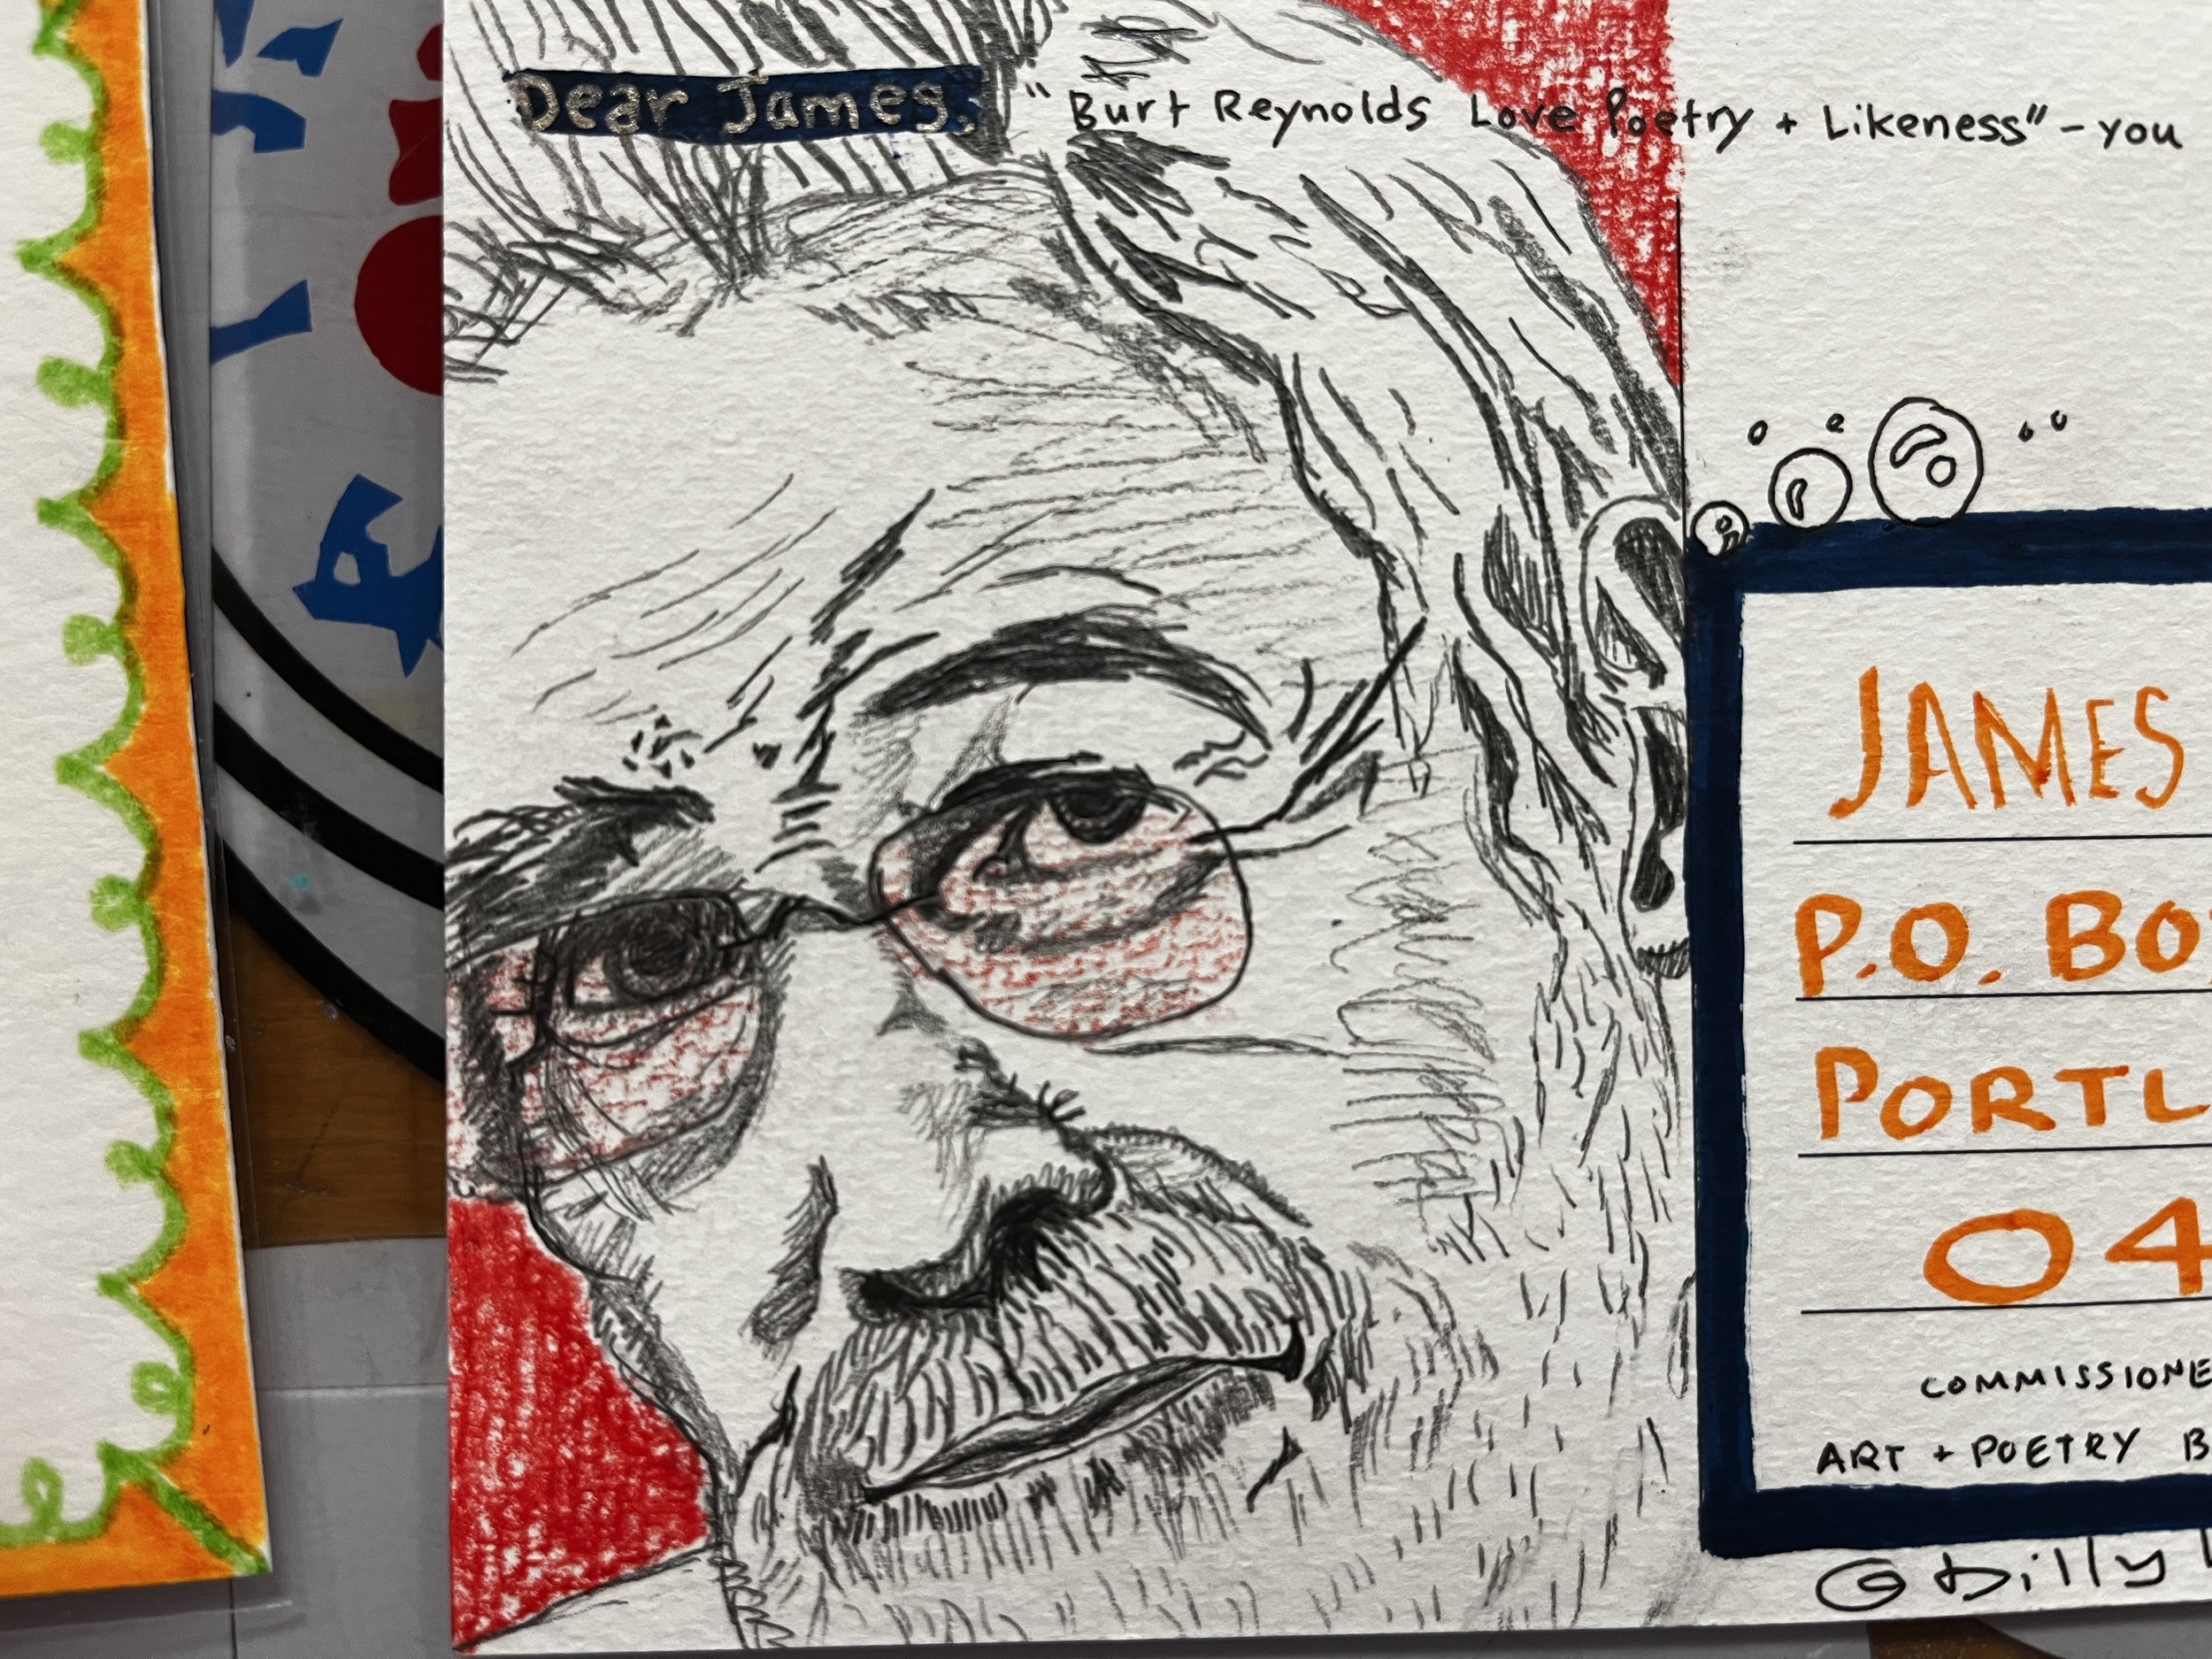 Dear James, "Burt Reynolds Love Poetry + Likeness" - you
JAMES
P.O. BO
PORTL
04
COMMISSIONE
ART + POETRY B
@billy